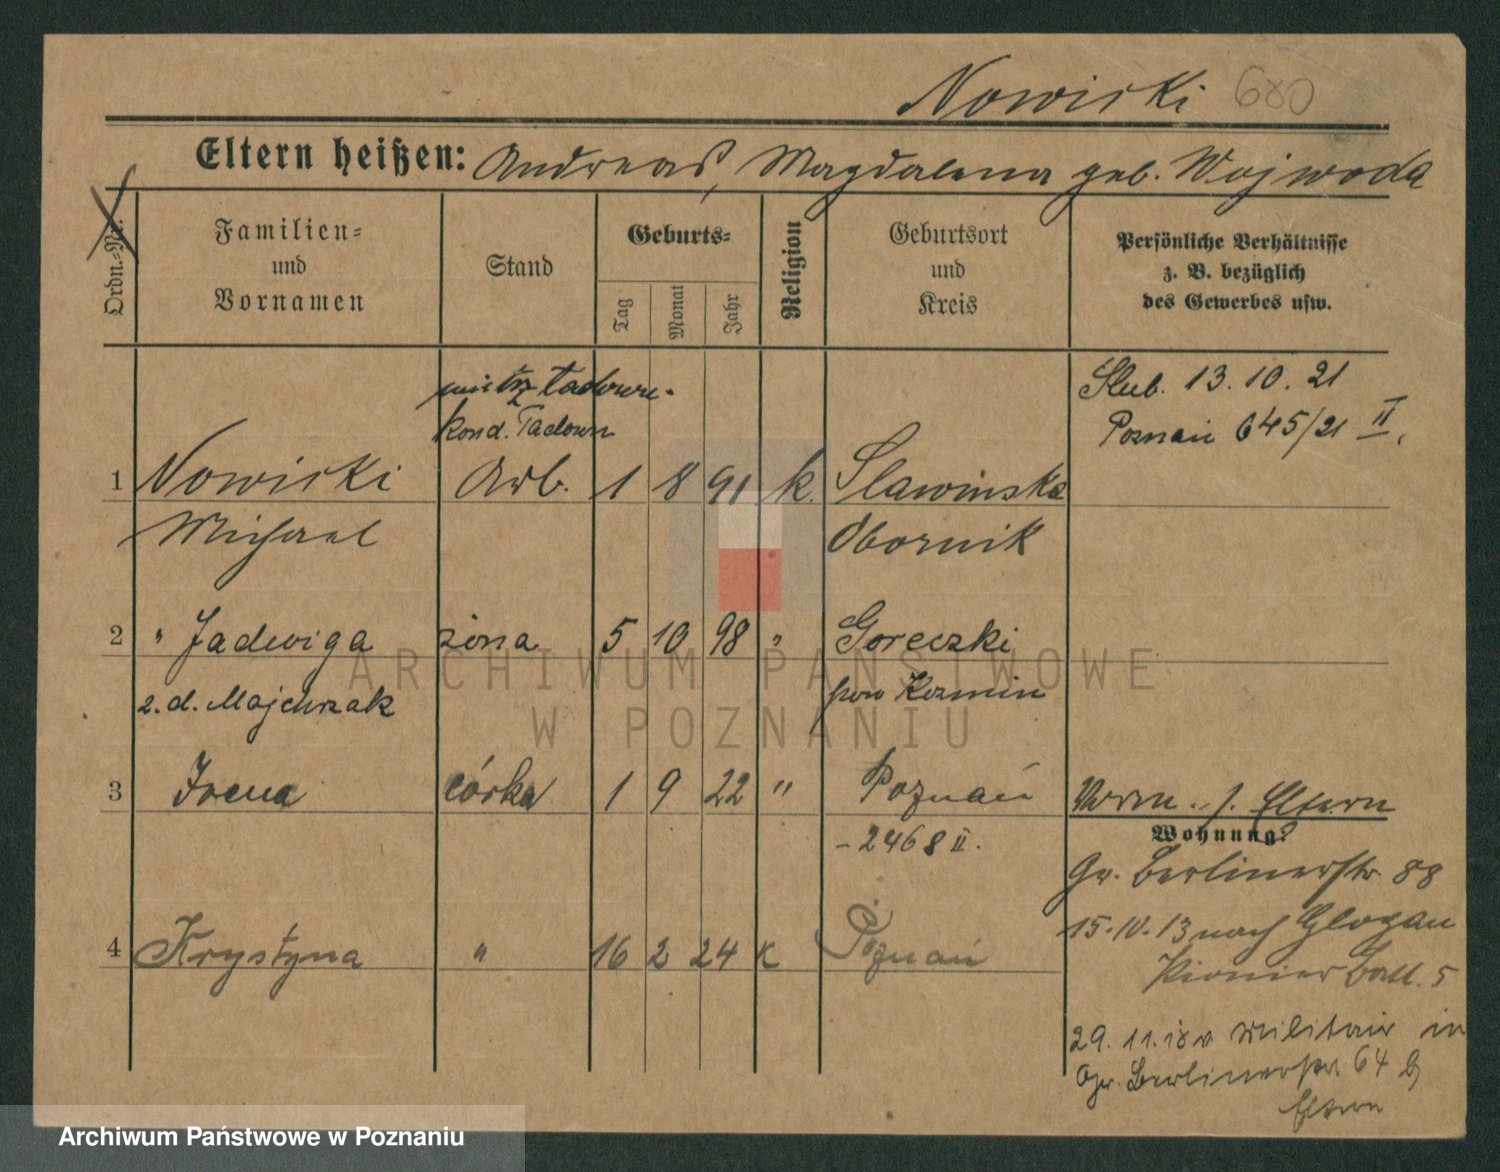 Nowicki 680
Eltern heißen: Andreas, Magdalena geb. Wojwoda
Ordn.-Nr.
Familien-
und
Vornamen
Stand
Geburts-
Tag
Monat
Jahr
Religion
Geburtsort
und
Kreis
Persönliche Verhältnisse
z. B. bezüglich
des Gewerbes usw.
kond.
Slub. 13.10.21
Poznań 645/21 II
1 Nowicki Arb. 1 8 91 k. Slawinska
Michael Obornik
2 " Jadwiga żona 5 10 98 " Goreczki
z. d. Majchrzak pow Kozmin
3 Irena córka 1 9 22 " Poznań
- 2468 II.
Eltern
Wohnung:
Gr. Berlinerstr. 88
4 Krystyna " 16 2 24 K Poznań
15.10.13 nach Glogau
Pionier Batl. 5
29.11.18 v Militair in
Gr. Berlinerstr. 64 b
Eltern
ARCHIWUM PAŃSTWOWE
W POZNANIU
Archiwum Państwowe w Poznaniu